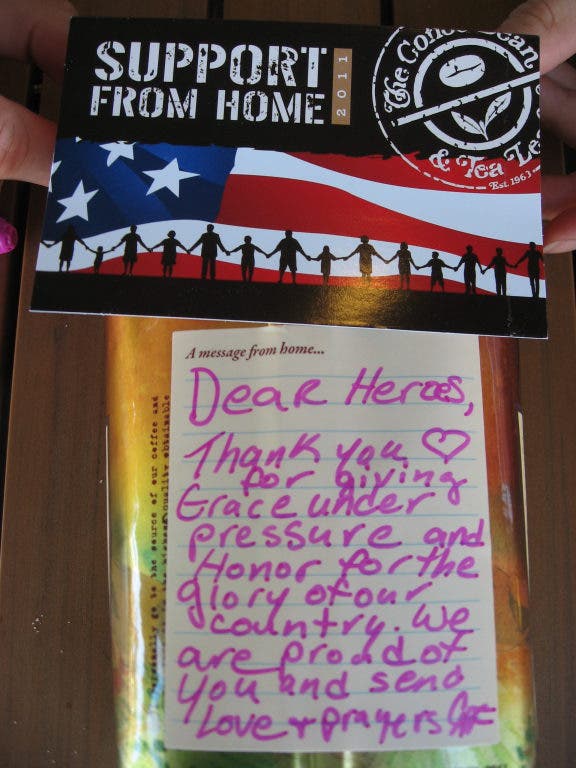 SUPPORT
FROM HOME
2011
The Coffee Bean
& Tea Leaf
Est. 1963
A message from home...
Dear Heroes,
Thank you ♡
for giving
Grace under
pressure and
Honor for the
glory of our
country. We
are proud of
you and send
Love + prayers
personally go to the source of our coffee and
the highest quality obtainable